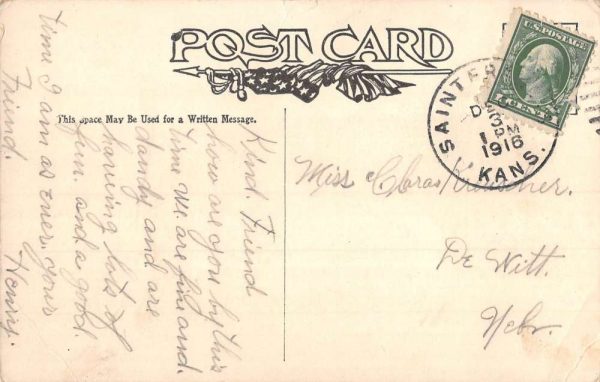 POST CARD
This Space May Be Used for a Written Message.
U.S. POSTAGE
1 CENT 1
D
1 PM
1916
KANS.
Kind. Friend
how are you by this
time we are fin and.
dandy and are
having lots of
fun. and a good.
time I am as ever. your
Friend.
Henry.
Miss Clara
De Witt.
Nebr.